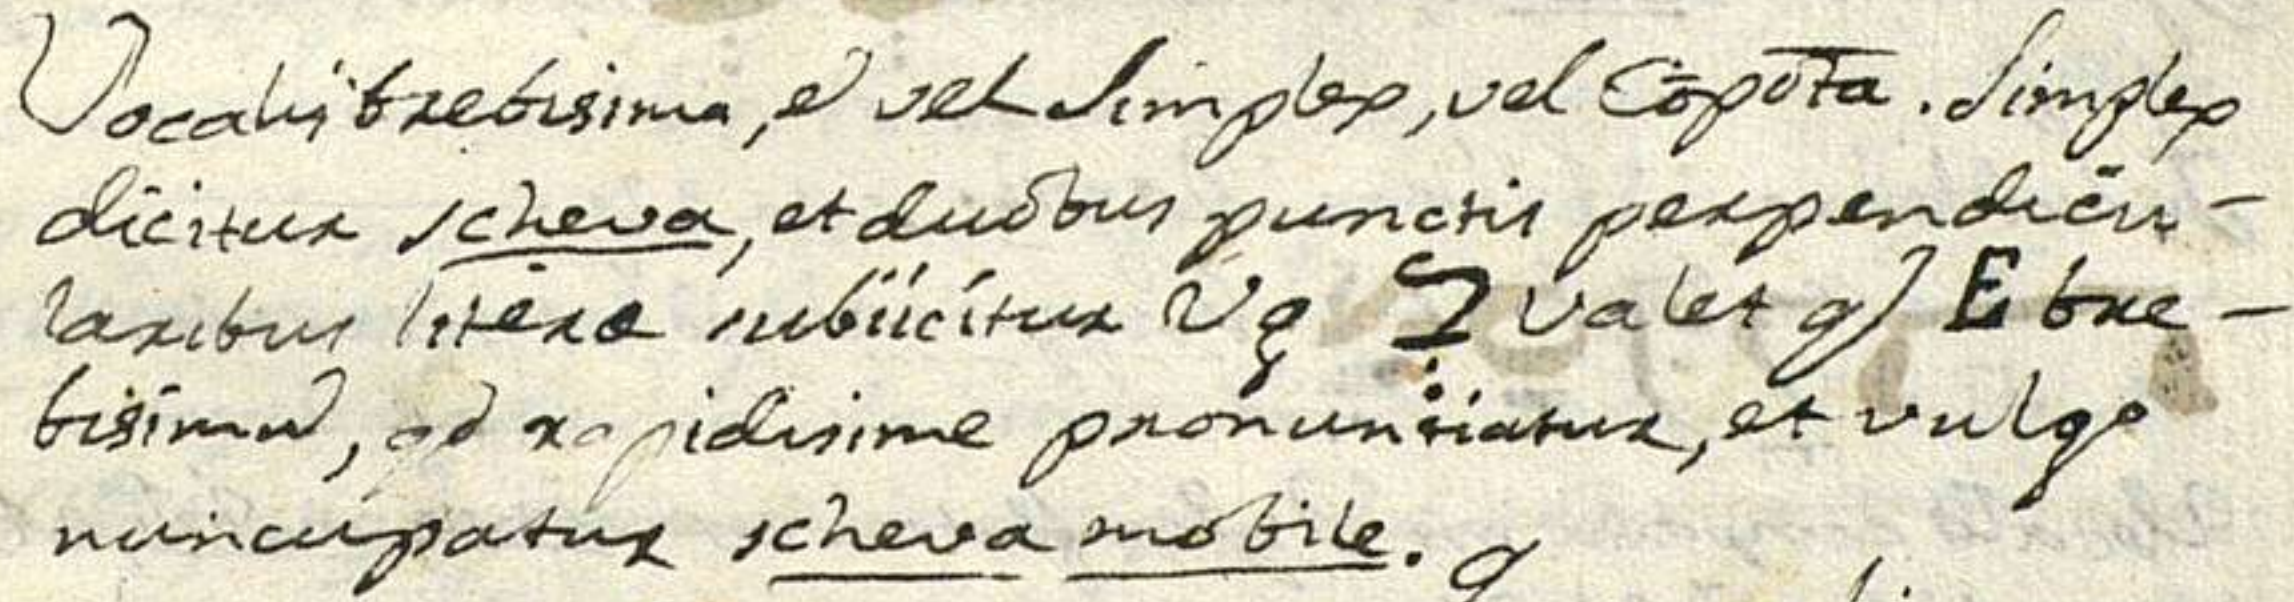 Vocalis brebisima, ē vel Simplex, vel Cōpōta. Simplex
dicitur scheva, et duobus punctis perpendicu-
laribus literæ subiicitur Vg בְ valet qͥ E bre-
bisimū, qd rapidisime pronuntiatur, et vulgo
nuncupatur scheva mobile.